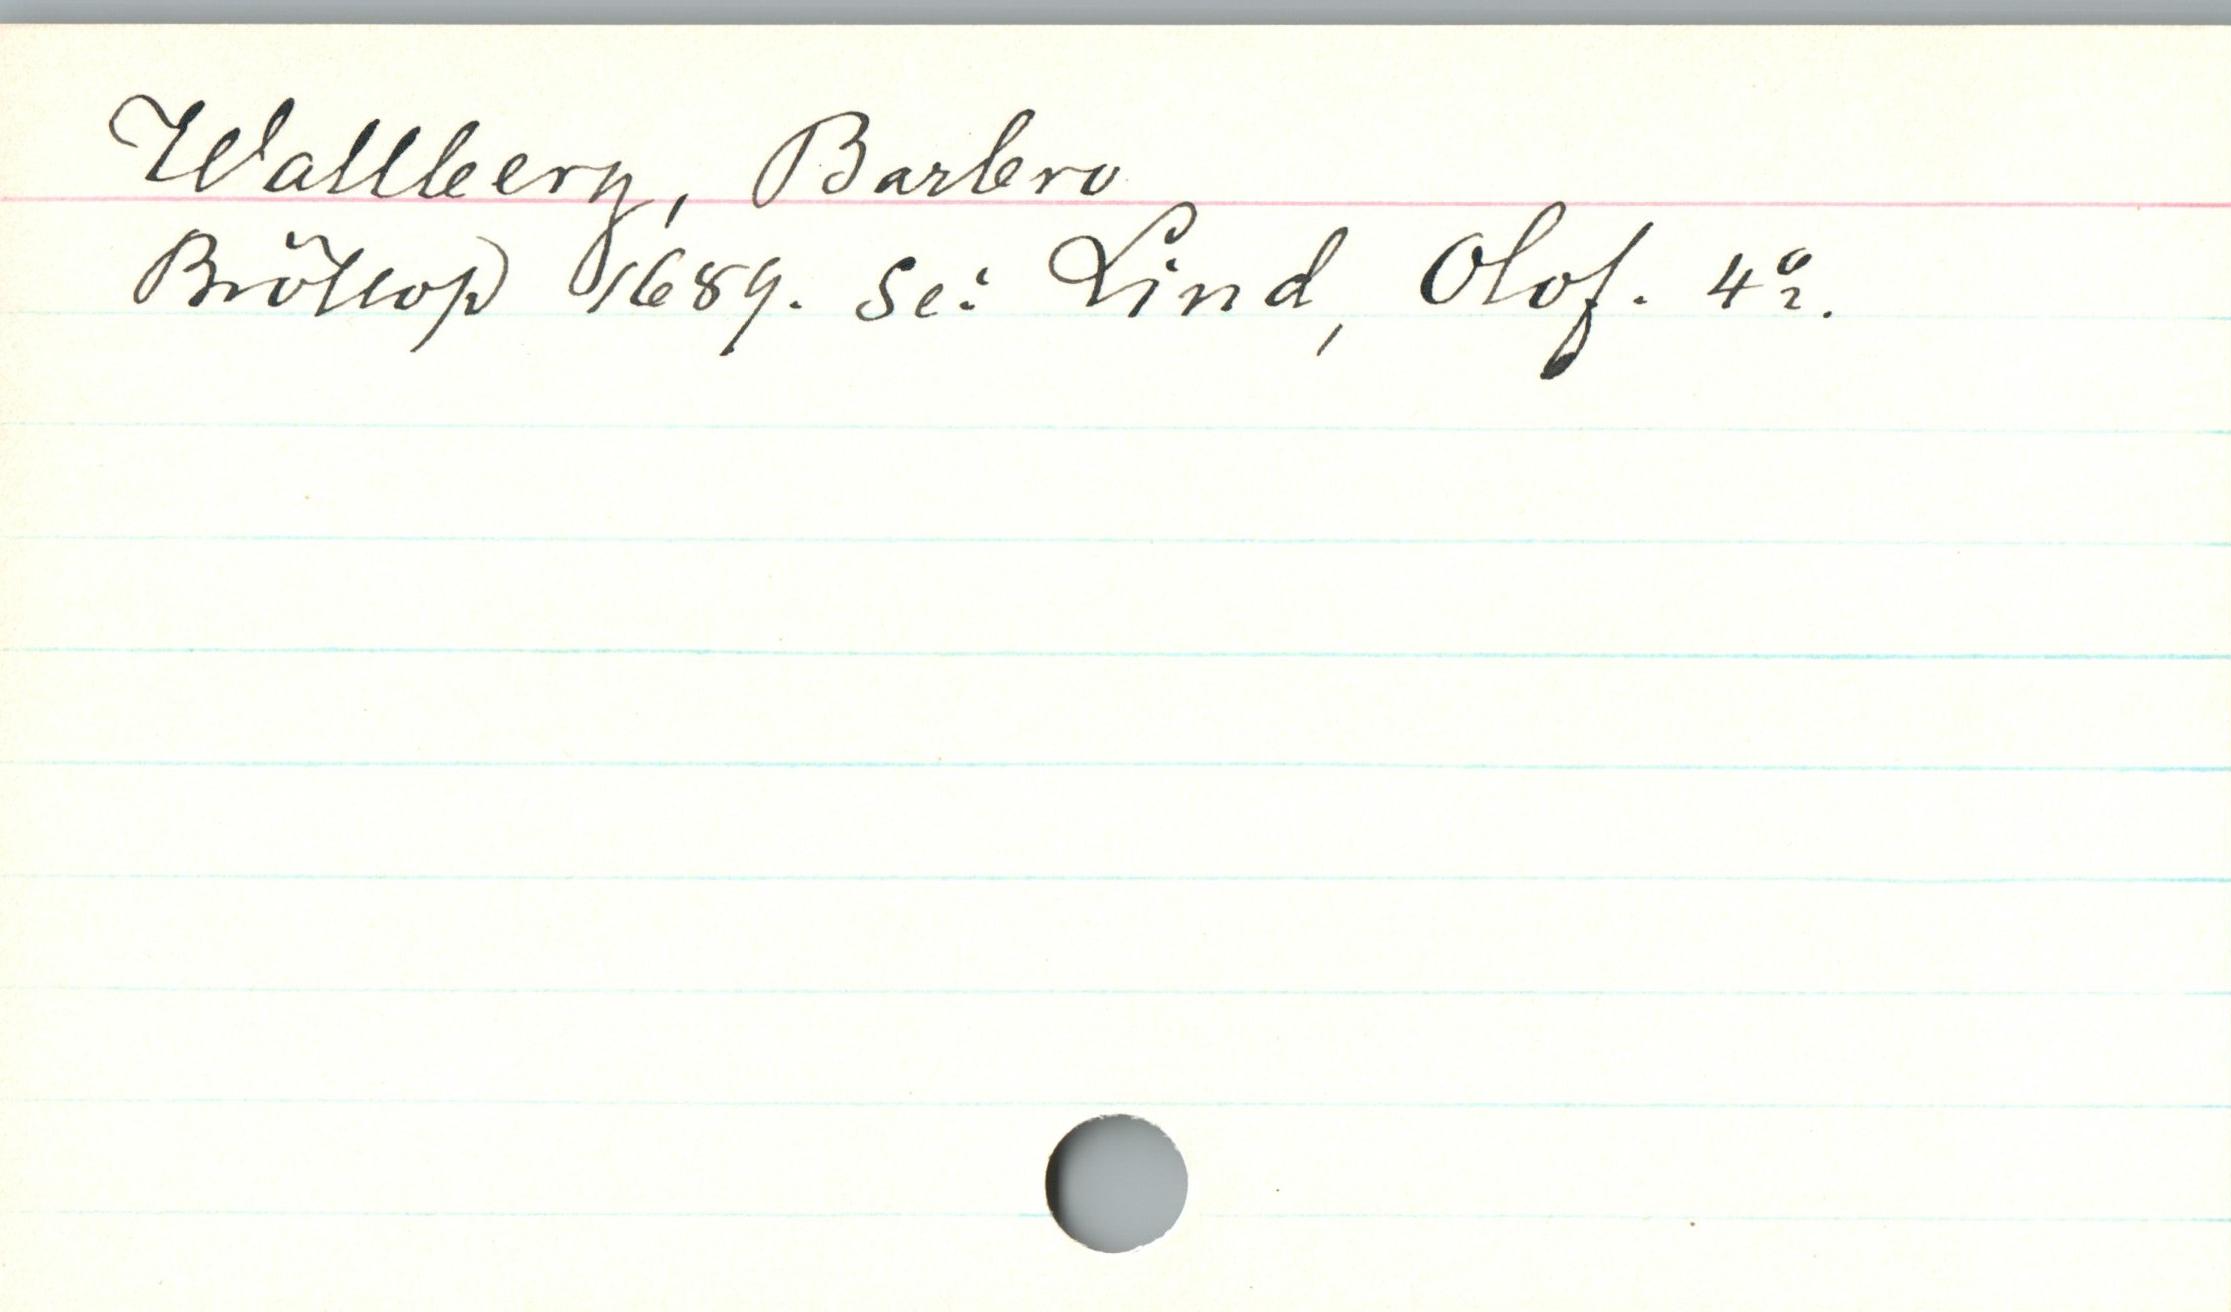 Wallberg, Barbro
Bröllop 1689. Se: Lind, Olof. 4º.